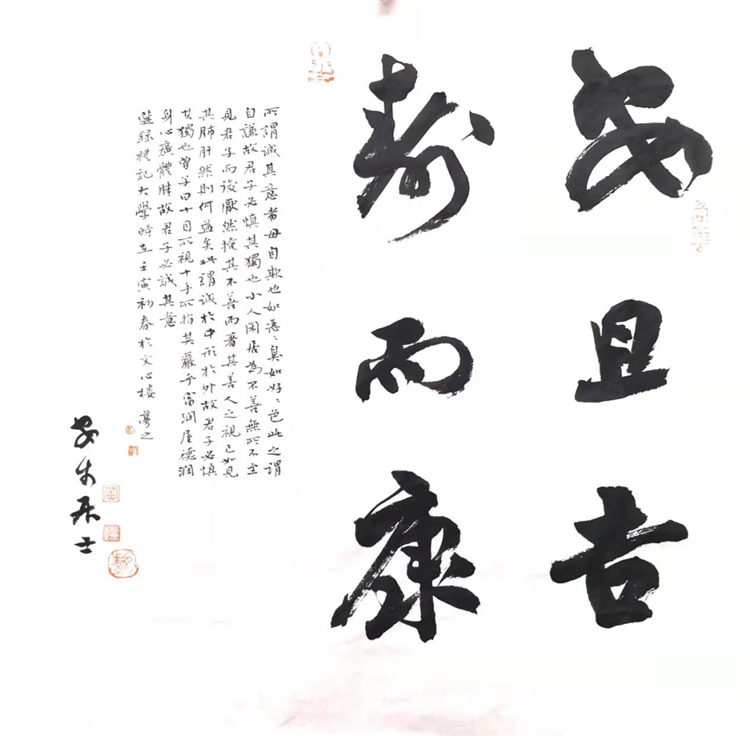 安且吉
寿而康
所謂誠其意者毋自欺也如惡〻臭如好〻色此之謂
自謙故君子必慎其獨也小人閑居為不善無所不至
見君子而後厭然掩其不善而著其善人之視己如見
其肺肝然則何益矣此謂誠於中形於外故君子必慎
其獨也曾子曰十目所視十手所指其嚴乎富潤屋德潤
身心廣體胖故君子必誠其意
選録禮記大學時在壬寅初春於文心樓 夢之
安居士